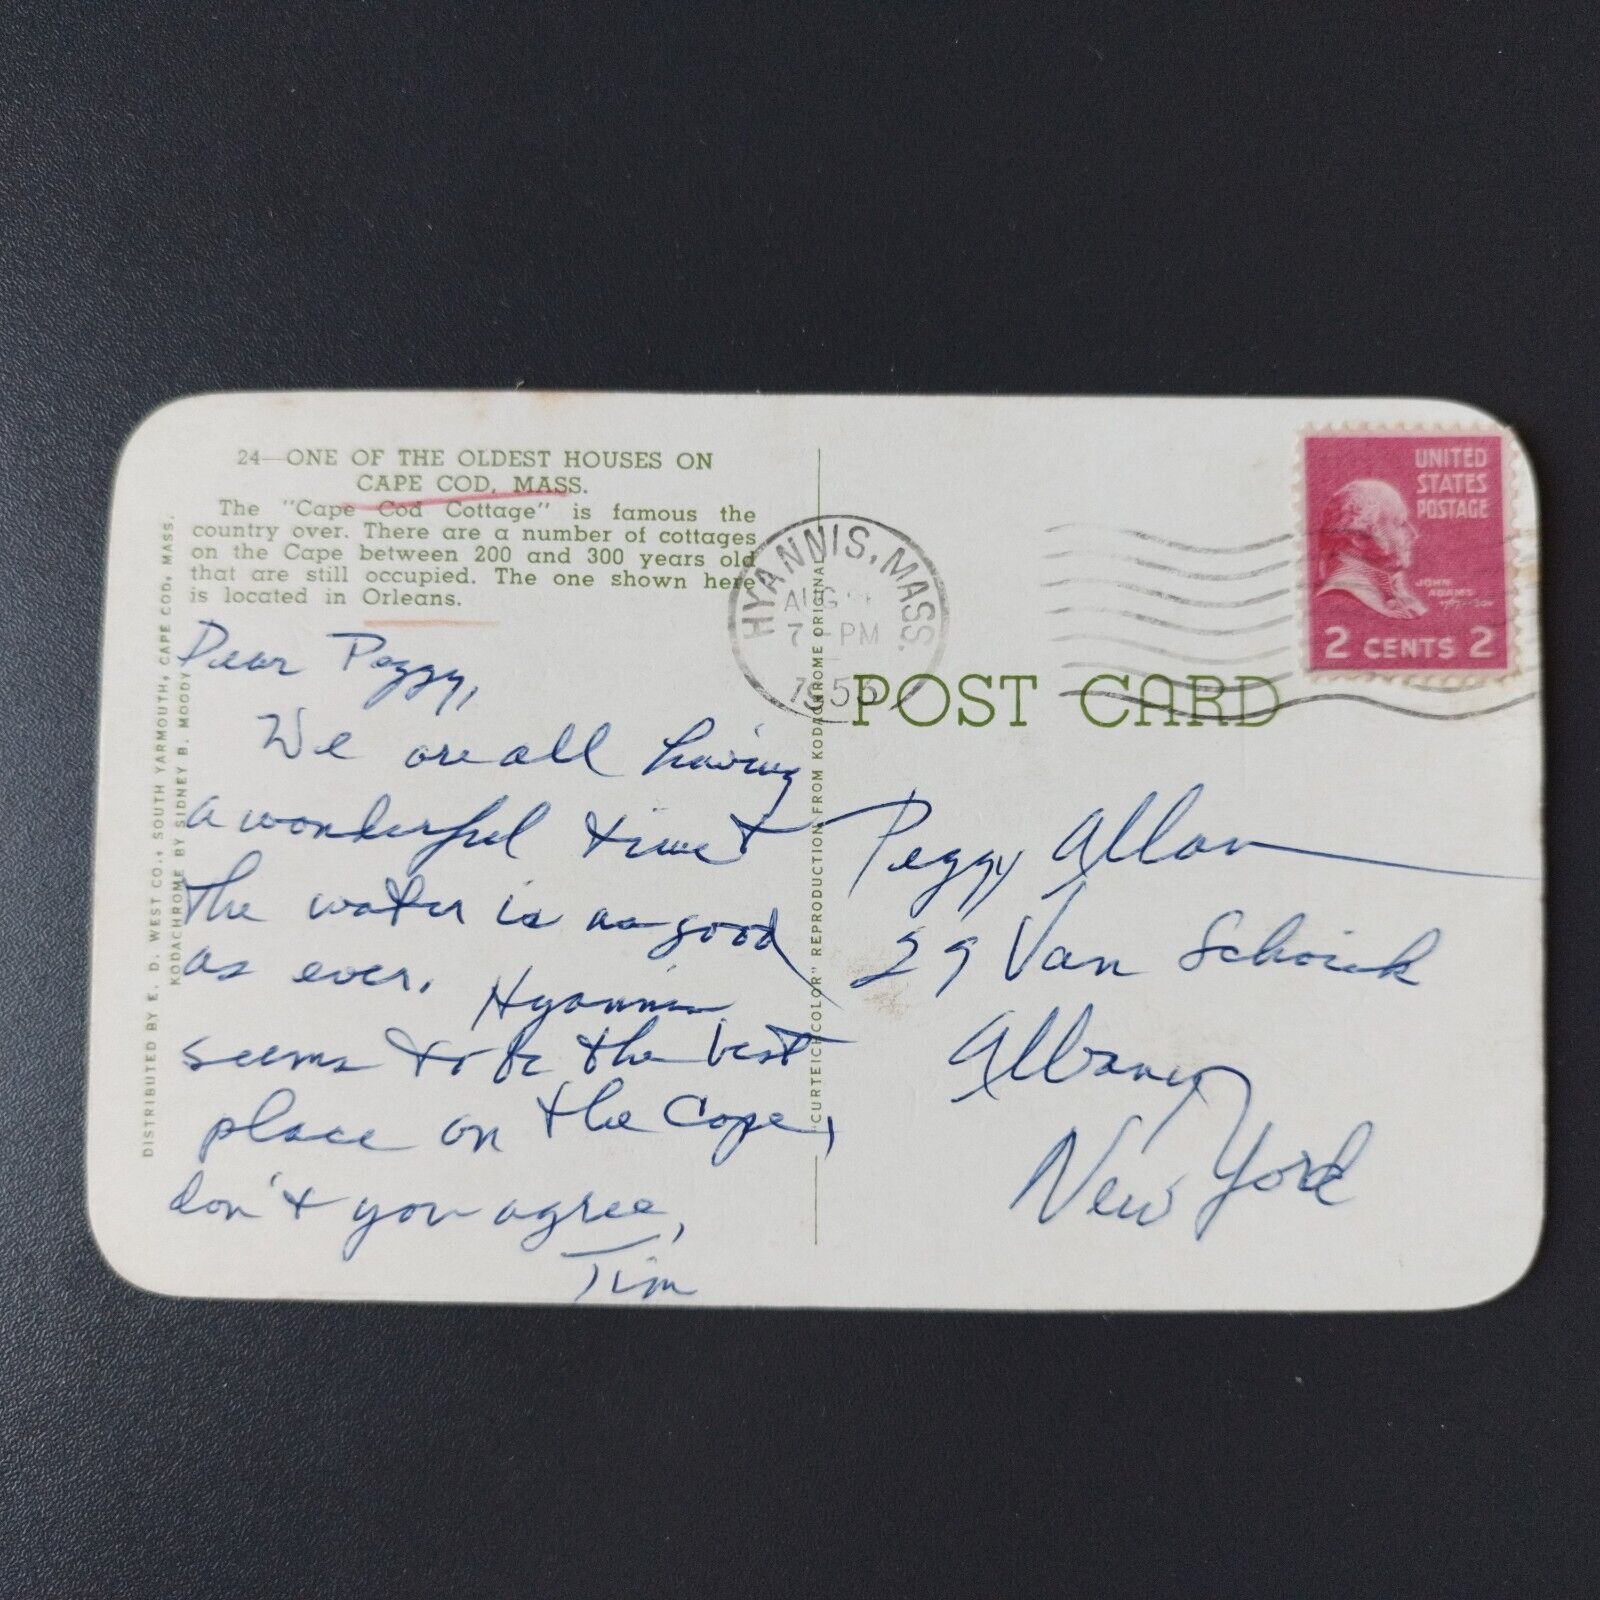 24—ONE OF THE OLDEST HOUSES ON
CAPE COD, MASS.
The "Cape Cod Cottage" is famous the
country over. There are a number of cottages
on the Cape between 200 and 300 years old
that are still occupied. The one shown here
is located in Orleans.
DISTRIBUTED BY E. D. WEST CO., SOUTH YARMOUTH, CAPE COD, MASS.
KODACHROME BY SIDNEY B. MOODY
Dear Peggy,
We are all having
a wonderful time &
the water is as good
as ever. Hyannis
seems to be the best
place on the Cape,
don't you agree,
Tim
"CURTEICHCOLOR" REPRODUCTION FROM KODACHROME ORIGINAL
HYANNIS, MASS.
AUG
7 - PM
1955
POST CARD
UNITED
STATES
POSTAGE
JOHN
ADAMS
2 CENTS 2
Peggy Allan
29 Van Schoick
Albany
New York